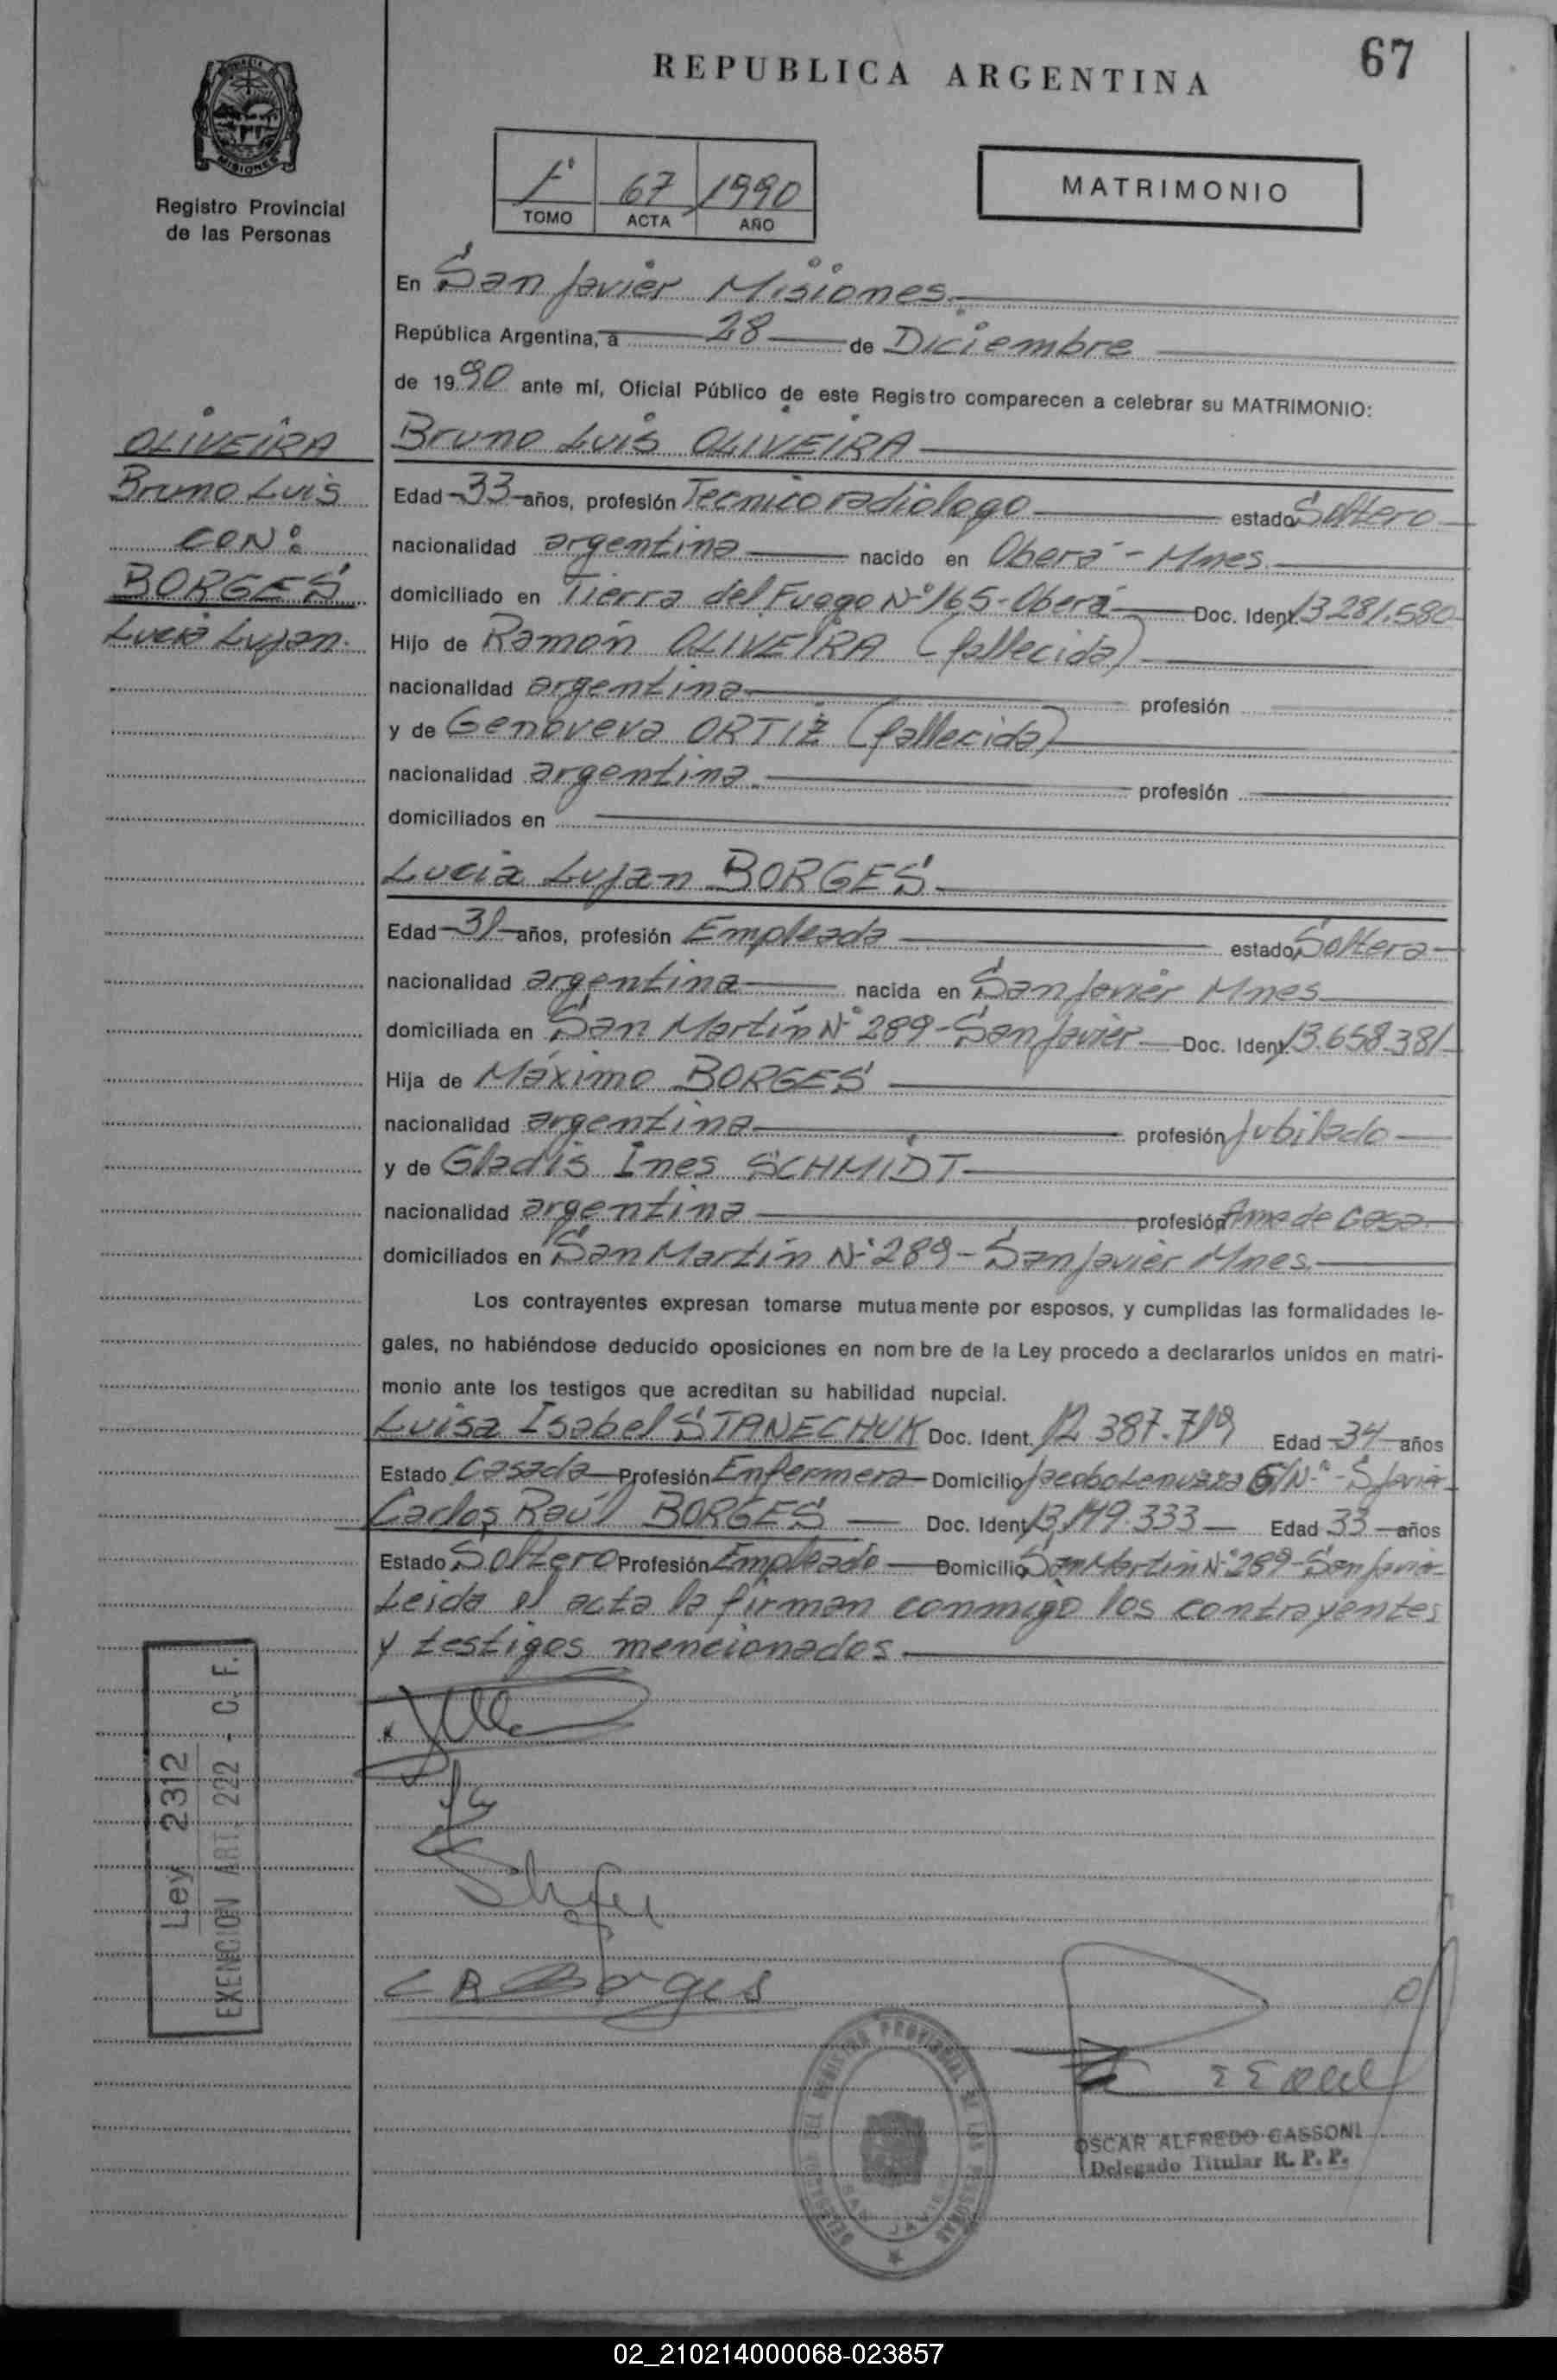 67
REPUBLICA ARGENTINA
MISIONES
Registro Provincial
de las Personas
1º 67 1990
TOMO ACTA AÑO
MATRIMONIO
En San Javier Misiones
República Argentina, a 28 de Diciembre
de 1990 ante mí, Oficial Público de este Registro comparecen a celebrar su MATRIMONIO:
OLIVEIRA
Bruno Luis
CON:
BORGES
Lucia Lujan.
Bruno Luis OLIVEIRA
Edad 33 años, profesión Tecnico radiologo estado Soltero
nacionalidad argentina nacido en Oberá - Mnes.
domiciliado en Tierra del Fuego Nº 165 - Oberá Doc. Ident. 13.281.580
Hijo de Ramón OLIVEIRA (fallecida)
nacionalidad argentina profesión
y de Genoveva ORTIZ (fallecida)
nacionalidad argentina. profesión
domiciliados en
Lucia Lujan BORGES
Edad 31 años, profesión Empleada estado Soltera
nacionalidad argentina nacida en San Javier Mnes
domiciliada en San Martín Nº 289 - San Javier Doc. Ident. 13.658.381
Hija de Máximo BORGES
nacionalidad argentina profesión Jubilado
y de Gladis Ines SCHMIDT
nacionalidad argentina profesión Ama de Casa
domiciliados en San Martín Nº 289 - San Javier Mnes.
Los contrayentes expresan tomarse mutuamente por esposos, y cumplidas las formalidades le-
gales, no habiéndose deducido oposiciones en nombre de la Ley procedo a declararlos unidos en matri-
monio ante los testigos que acreditan su habilidad nupcial.
Luisa Isabel STANECHUK Doc. Ident. 12.387.719 Edad 34 años
Estado Casada Profesión Enfermera Domicilio S/Nº - S Javier
Carlos Raúl BORGES Doc. Ident. 13.149.333 Edad 33 años
Estado Soltero Profesión Empleado Domicilio San Martín Nº 289 - San Javier
Leida el acta la firman conmigo los contrayentes
y testigos mencionados.
Ley 2312
EXENCION ART. 222 - C. F.
C R Borges
DELEGACION DEL REGISTRO PROVINCIAL DE LAS PERSONAS
SAN JAVIER
OSCAR ALFREDO CASSONI
Delegado Titular R. P. P.
02_210214000068-023857